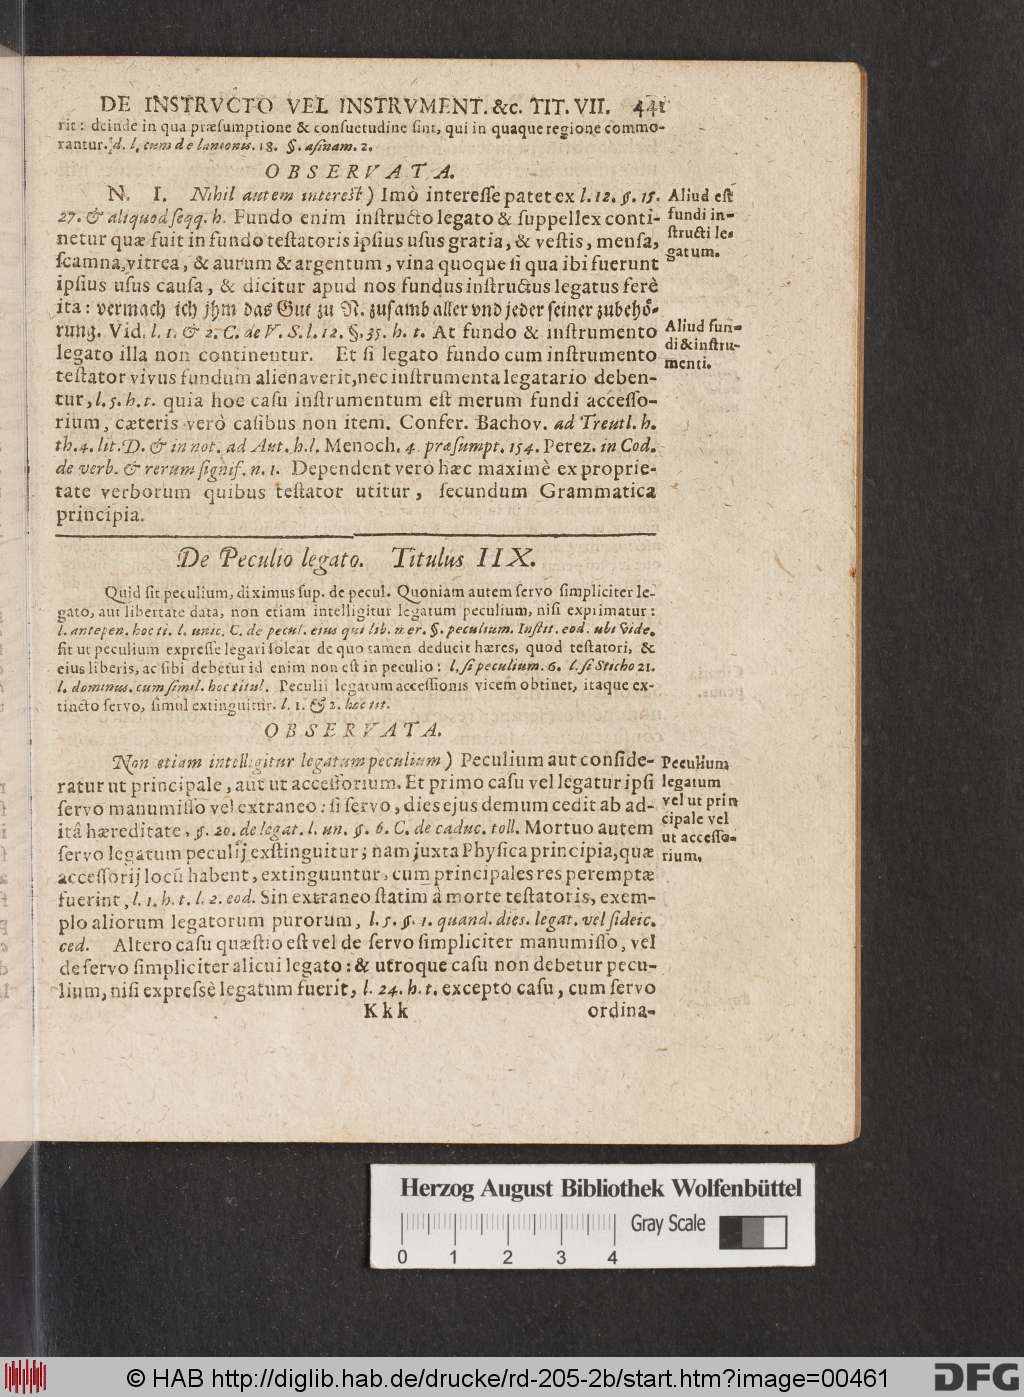 DE INSTRVCTO VEL INSTRVMENT. &c. TIT. VII. 441
rit: deinde in qua præsumptione & consuetudine sint, qui in quaque regione commo-
rantur. d. l. cum de lanionis. 18. §. asinam. 2.
OBSERVATA.
N. I. Nihil autem interest) Imò interesse patet ex l. 12. §. 15.
27. & aliquod seqq. h. Fundo enim instructo legato & suppellex conti-
netur quæ fuit in fundo testatoris ipsius usus gratia, & vestis, mensa,
scamna, vitrea, & aurum & argentum, vina quoque si qua ibi fuerunt
ipsius usus causa, & dicitur apud nos fundus instructus legatus ferè
ita: vermach ich jhm das Gut zu N. zusamb aller vnd jeder seiner zubehö-
rung. Vid. l. 1. & 2. C. de V. S. l. 12. §. 35. h. t. At fundo & instrumento
legato illa non continentur. Et si legato fundo cum instrumento
testator vivus fundum alienaverit, nec instrumenta legatario deben-
tur, l. 5. h. t. quia hoc casu instrumentum est merum fundi accesso-
rium, cæteris verò casibus non item. Confer. Bachov. ad Treutl. h.
th. 4. lit. D. & in not. ad Aut. h. l. Menoch. 4. præsumpt. 154. Perez. in Cod.
de verb. & rerum signif. n. 1. Dependent vero hæc maximè ex proprie-
tate verborum quibus testator utitur, secundum Grammatica
principia.
Aliud est
fundi in-
structi le-
gatum.
Aliud fun-
di & instru-
menti.
De Peculio legato. Titulus IIX.
Quid sit peculium, diximus sup. de pecul. Quoniam autem servo simpliciter le-
gato, aut libertate data, non etiam intelligitur legatum peculium, nisi exprimatur:
l. antepen. hoc ti. l. unic. C. de pecul. ejus qui lib. mer. §. peculium. Instit. eod. ubi vide.
sit ut peculium expresse legari soleat de quo tamen deducit hæres, quod testatori, &
eius liberis, ac sibi debetur id enim non est in peculio: l. si peculium. 6. l. si Sticho 21.
l. dominus. cum simil. hoc titul. Peculii legatum accessionis vicem obtinet, itaque ex-
tincto servo, simul extinguitur. l. 1. & 2. hoc tit.
OBSERVATA.
Non etiam intelligitur legatum peculium) Peculium aut conside-
ratur ut principale, aut ut accessorium. Et primo casu vel legatur ipsi
servo manumisso vel extraneo: si servo, dies ejus demum cedit ab ad-
itâ hæreditate, §. 20. de legat. l. un. §. 6. C. de caduc. toll. Mortuo autem
servo legatum peculij exstinguitur; nam juxta Physica principia, quæ
accessorij locũ habent, extinguuntur, cum principales res peremptæ
fuerint, l. 1. h. t. l. 2. eod. Sin extraneo statim à morte testatoris, exem-
plo aliorum legatorum purorum, l. 5. §. 1. quand. dies. legat. vel fideic.
ced. Altero casu quæstio est vel de servo simpliciter manumisso, vel
de servo simpliciter alicui legato: & utroque casu non debetur pecu-
lium, nisi expressè legatum fuerit, l. 24. h. t. excepto casu, cum servo
Peculium
legatum
vel ut prin
cipale vel
ut accesso-
rium.
Kkk ordina-
Herzog August Bibliothek Wolfenbüttel
Gray Scale
0 1 2 3 4
© HAB http://diglib.hab.de/drucke/rd-205-2b/start.htm?image=00461
DFG